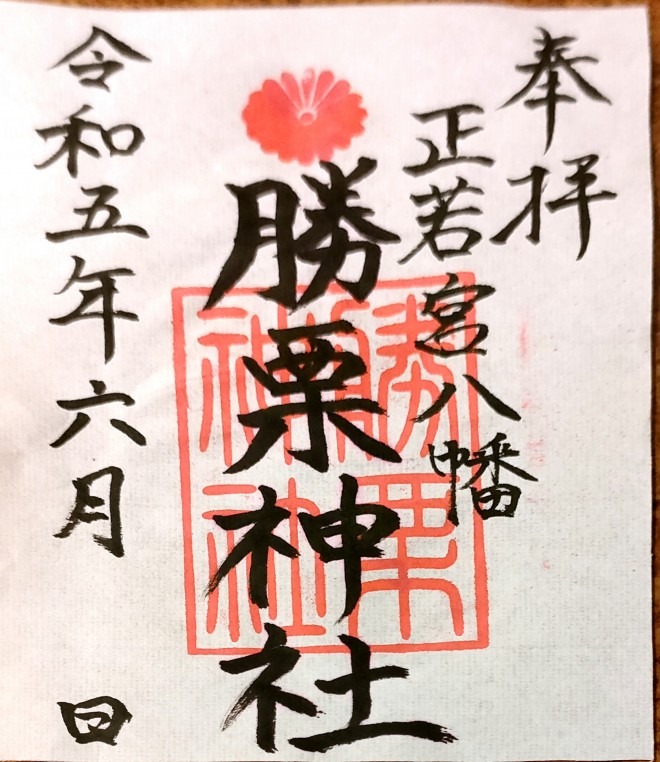 奉拝
正若宮八幡
勝栗神社
勝栗神社
令和五年六月 日